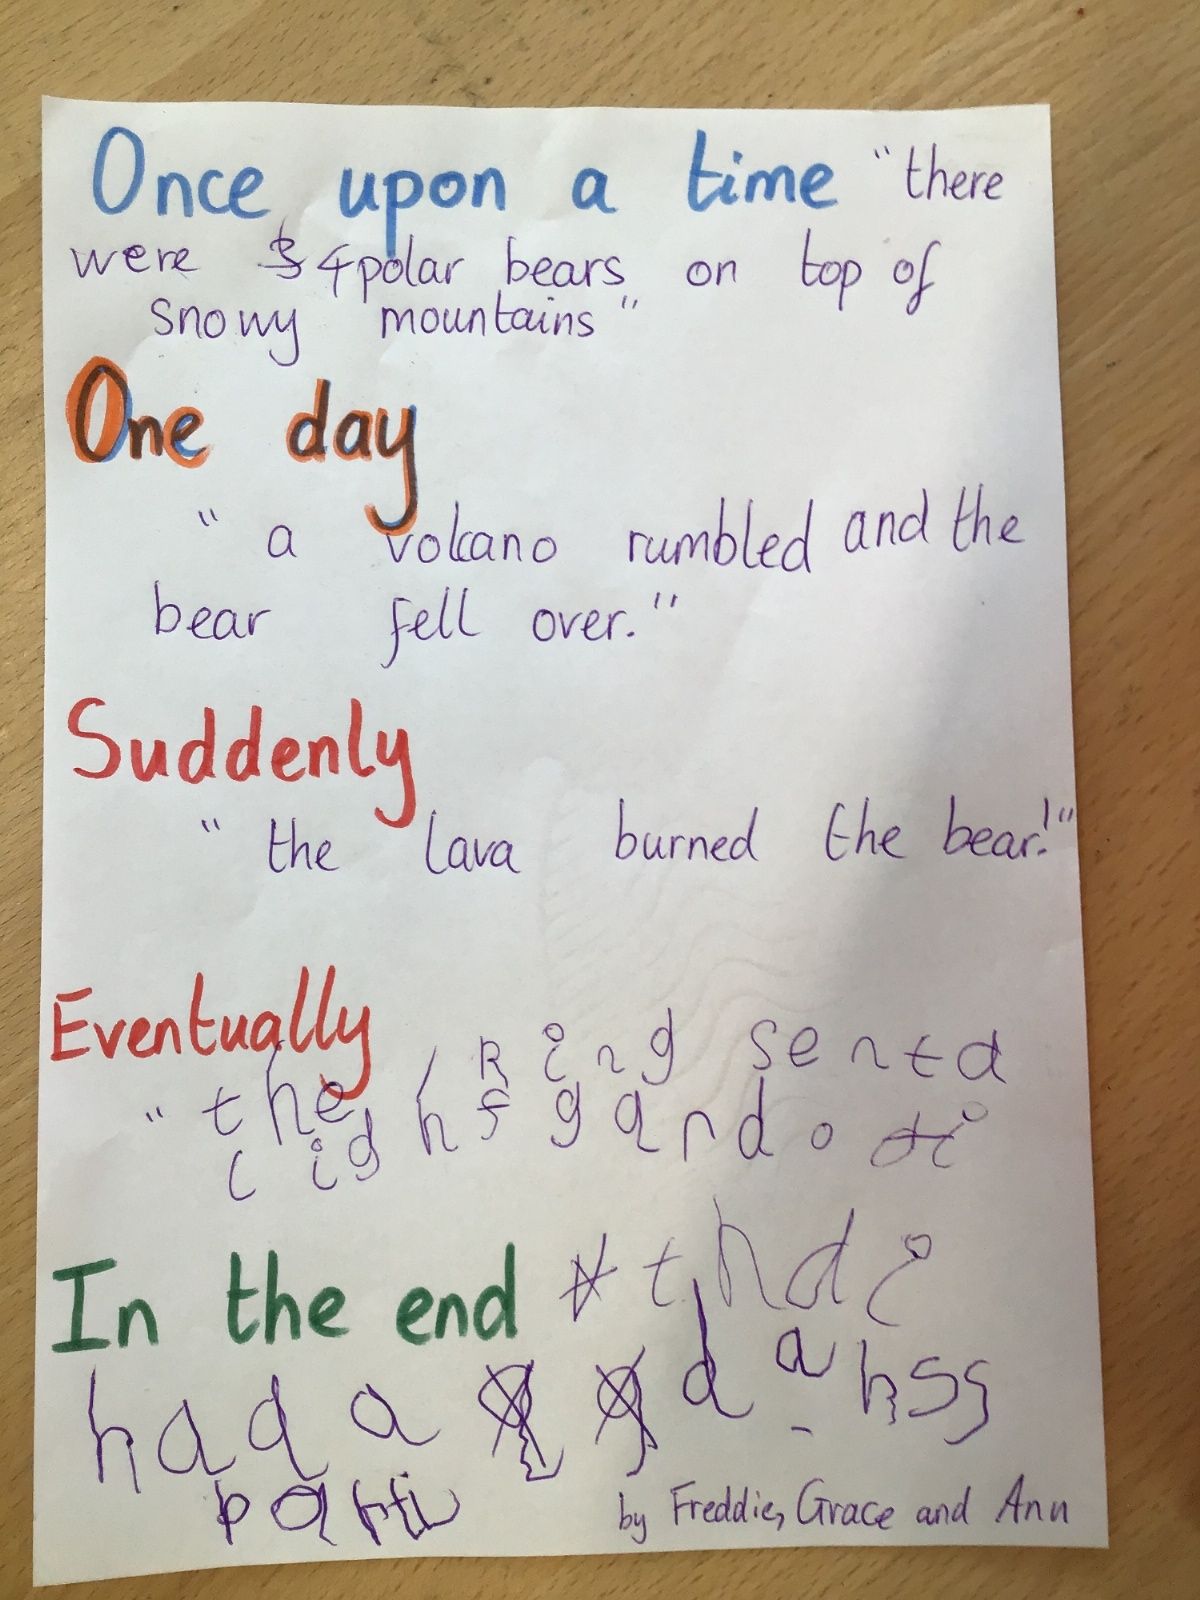 Once upon a time "there
were 4 polar bears on top of
snowy mountains"
One day
" a volcano rumbled and the
bear fell over."
Suddenly
" the lava burned the bear!"
Eventually
" the king sentd
In the end
had a
parti
by Freddie, Grace and Ann